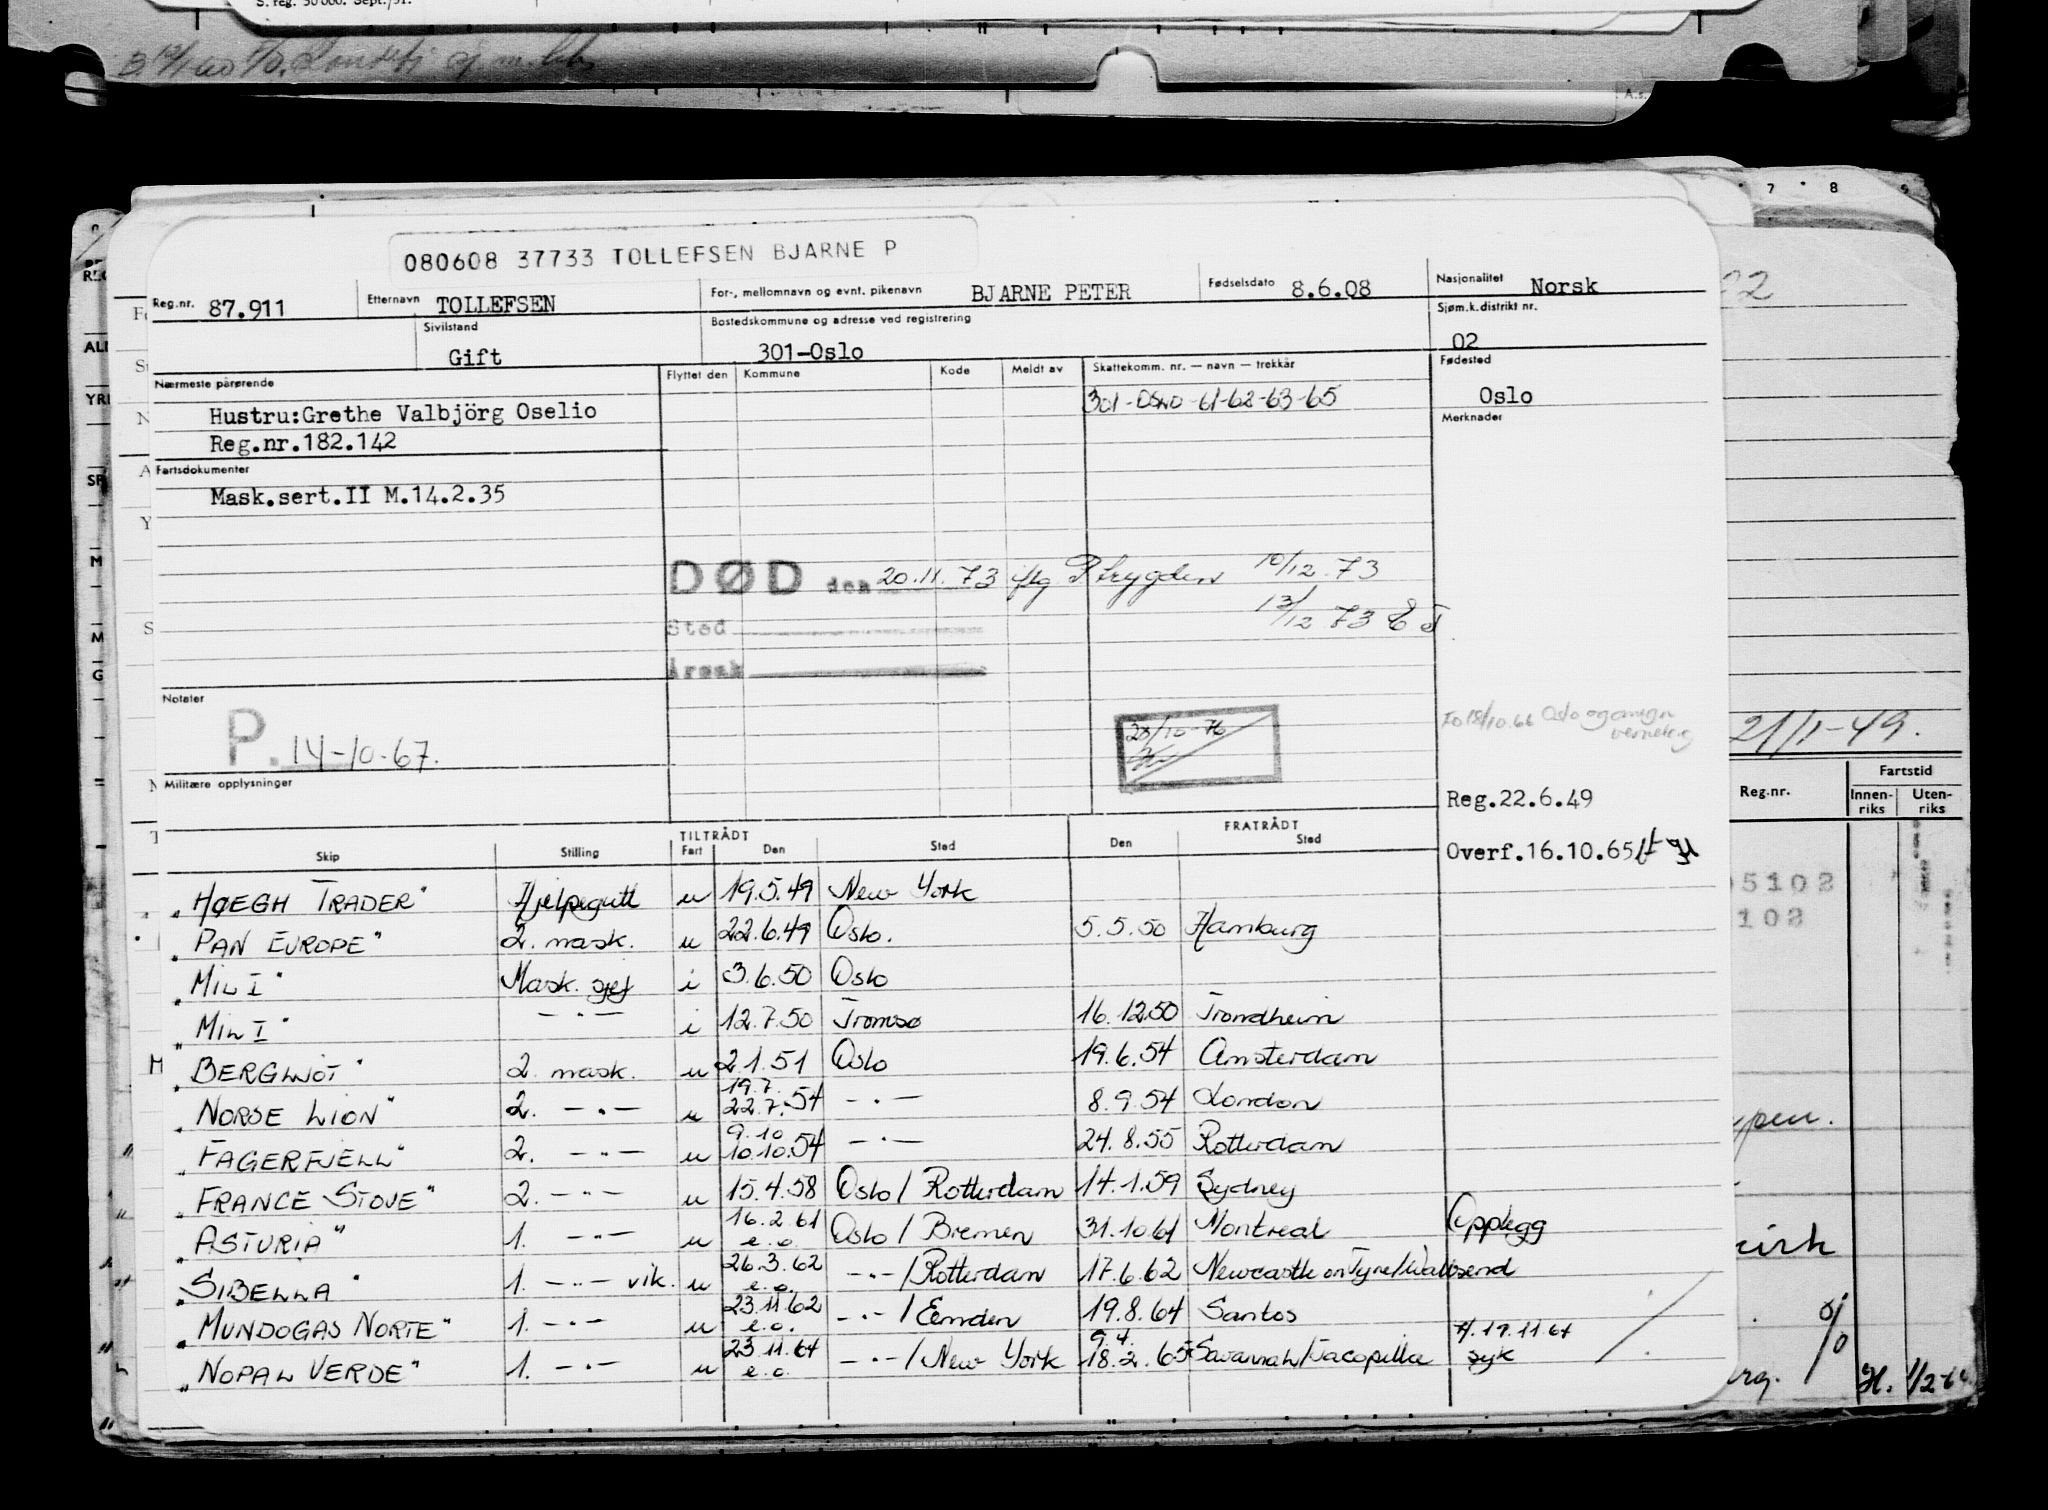 S. reg. 50 000. Sept./51.
A.s.
7 8 9
080608 37733 TOLLEFSEN BJARNE P
Reg.nr. 87.911 Etternavn TOLLEFSEN For-, mellomnavn og evnt. pikenavn BJARNE PETER Fødselsdato 8.6.08 Nasjonalitet Norsk
Sivilstand Gift Bostedskommune og adresse ved registrering 301-Oslo Sjøm.k.distrikt nr. 02
Nærmeste pårørende Flyttet den Kommune Kode Meldt av Skattekomm. nr. — navn — trekkår Fødested
Hustru:Grethe Valbjörg Oselio 301-OSLO-61-62-63-65 Oslo
Reg.nr.182.142 Merknader
Fartsdokumenter
Mask.sert.II M.14.2.35
DØD den 20.11.73 iflg P.trygden 10/12.73
13/12 73
Sted
Årsak
Notater
P. 14-10-67.
28/10-76
Militære opplysninger
Reg.22.6.49
Overf.16.10.65
TILTRÅDT FRATRÅDT
Skip Stilling Fart Den Sted Den Sted
"HØEGH TRADER" Hjelpegutt u 19.5.49 New York
"PAN EUROPE" 2. mask. u 22.6.49 Oslo. 5.5.50 Hamburg
"MIL I" Mask. sjef i 3.6.50 Oslo
"MIL I" —"— i 12.7.50 Tromsø 16.12.50 Trondheim
"BERGLJOT" 2. mask. u 2.1.51 Oslo 19.6.54 Amsterdam
"NORSE LION" 2. —"— u 19.7. 22.7.54 —"— 8.9.54 London
"FAGERFJELL" 2. —"— u 9.10 10.10.54 —"— 24.8.55 Rotterdam
"FRANCE STOVE" 2. —"— u 15.4.58 Oslo/Rotterdam 14.1.59 Sydney
"ASTURIA" 1. —"— u 16.2.61 e.o. Oslo/Bremen 31.10.61 Montreal Opplegg
"SIBELLA" 1. —"— vik. u 26.3.62 e.o. —"—/Rotterdam 17.6.62 Newcastle on Tyne/Wallsend
"MUNDOGAS NORTE" 1. —"— u 23.11.62 e.o. —"—/Emden 19.8.64 Santos
"NOPAL VERDE" 1. —"— u 23.11.64 e.o. —"—/New York 9.4. 18.2.65 Savannah/Tacopilla syk
21/1-49.
Reg.nr. Fartstid
Innenriks Utenriks
5102
102
H. 1/2-6